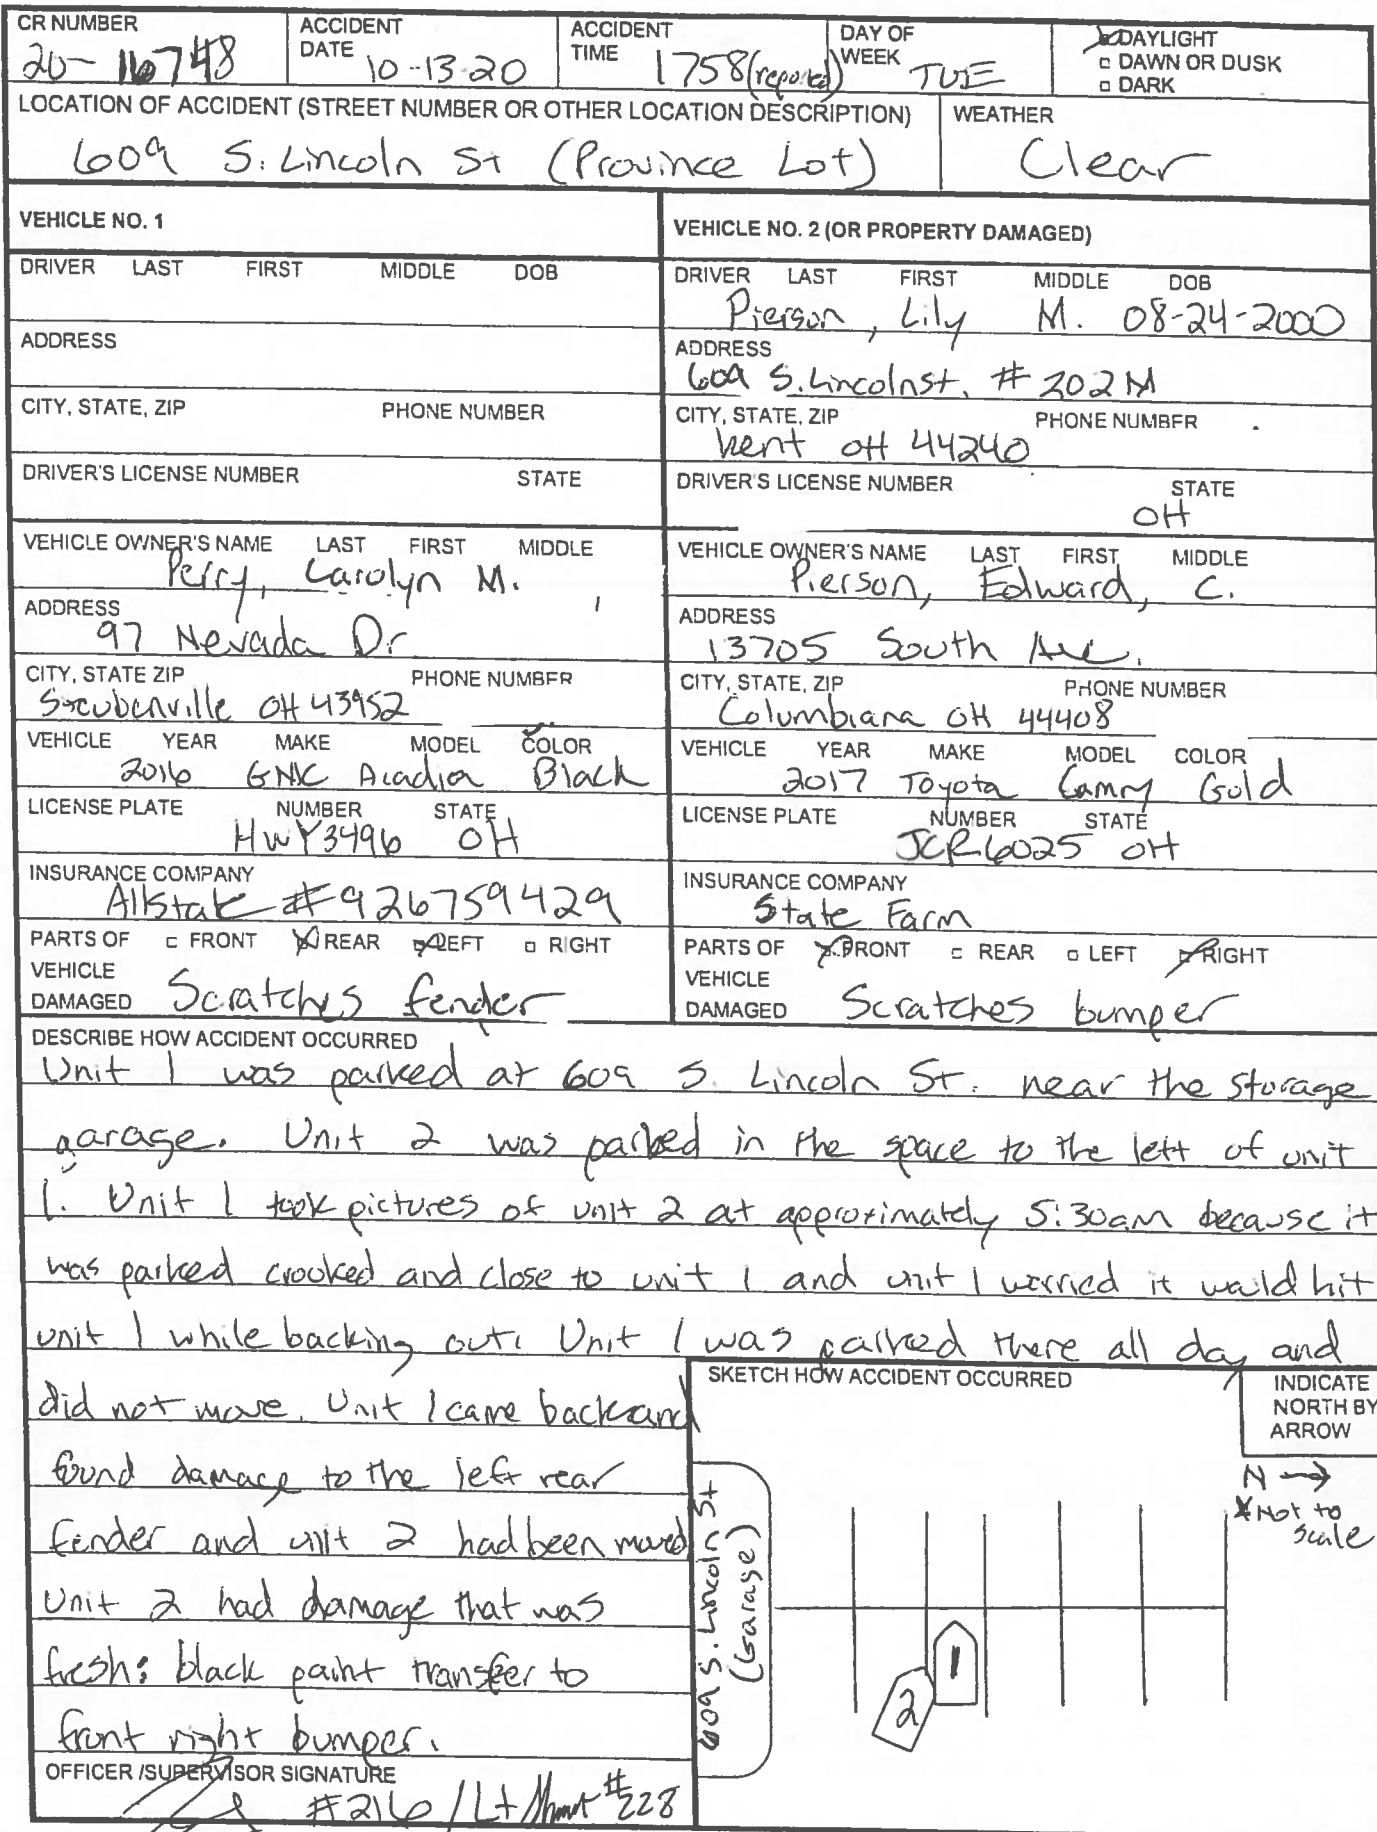 CR NUMBER ACCIDENT DATE ACCIDENT TIME DAY OF WEEK DAYLIGHT
20-16748 10-13-20 1758 (reported) TUE □ DAWN OR DUSK
□ DARK
LOCATION OF ACCIDENT (STREET NUMBER OR OTHER LOCATION DESCRIPTION) WEATHER
609 S. Lincoln St (Province Lot) Clear
VEHICLE NO. 1
DRIVER LAST FIRST MIDDLE DOB
ADDRESS
CITY, STATE, ZIP PHONE NUMBER
DRIVER'S LICENSE NUMBER STATE
VEHICLE OWNER'S NAME LAST FIRST MIDDLE
Perry, Carolyn M.
ADDRESS
97 Nevada Dr
CITY, STATE ZIP PHONE NUMBER
Steubenville OH 43952
VEHICLE YEAR MAKE MODEL COLOR
2016 GMC Acadia Black
LICENSE PLATE NUMBER STATE
HWY3496 OH
INSURANCE COMPANY
Allstate #926759429
PARTS OF □ FRONT REAR LEFT □ RIGHT
VEHICLE
DAMAGED Scratches fender
VEHICLE NO. 2 (OR PROPERTY DAMAGED)
DRIVER LAST FIRST MIDDLE DOB
Pierson, Lily M. 08-24-2000
ADDRESS
609 S. Lincoln St. # 202M
CITY, STATE, ZIP PHONE NUMBER
Kent OH 44240
DRIVER'S LICENSE NUMBER STATE
OH
VEHICLE OWNER'S NAME LAST FIRST MIDDLE
Pierson, Edward, C.
ADDRESS
13705 South Ave.
CITY, STATE, ZIP PHONE NUMBER
Columbiana OH 44408
VEHICLE YEAR MAKE MODEL COLOR
2017 Toyota Camry Gold
LICENSE PLATE NUMBER STATE
JCR6025 OH
INSURANCE COMPANY
State Farm
PARTS OF FRONT □ REAR □ LEFT RIGHT
VEHICLE
DAMAGED Scratches bumper
DESCRIBE HOW ACCIDENT OCCURRED
Unit 1 was parked at 609 S. Lincoln St. near the storage
garage. Unit 2 was parked in the space to the left of unit
1. Unit 1 took pictures of unit 2 at approximately 5:30am because it
was parked crooked and close to unit 1 and unit 1 worried it would hit
unit 1 while backing out. Unit 1 was parked there all day and
did not move. Unit 1 came back and
found damage to the left rear
fender and unit 2 had been moved
Unit 2 had damage that was
fresh: black paint transfer to
front right bumper.
OFFICER /SUPERVISOR SIGNATURE
#216 / Lt #228
SKETCH HOW ACCIDENT OCCURRED
INDICATE
NORTH BY
ARROW
N →
*Not to
scale
609 S. Lincoln St
(Garage)
1
2